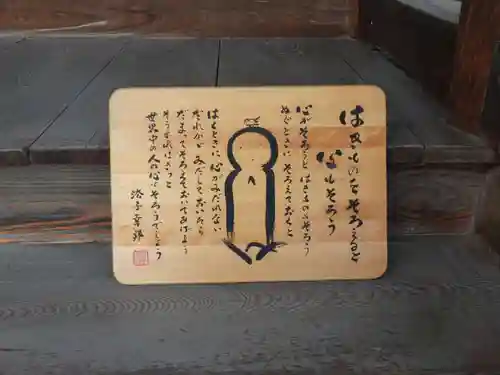 はきものをそろえると
心もそろう
心がそろうと はきものもそろう
ぬぐときに そろえておくと
はくときに 心がみだれない
だれかが みだしておいたら
だまって そろえておいてあげよう
そうすればきっと
世界中の 人の心もそろうでしょう